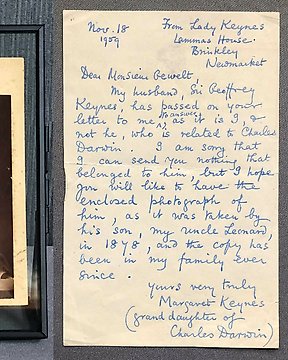 Nov. 18
1959
From Lady Keynes
Lammas House.
Brinkley
Newmarket
Dear Monsieur Gewelt,
My husband, Sir Geoffrey
Keynes, has passed on your
letter to me to answer, as it is I, &
not he, who is related to Charles
Darwin. I am sorry that
I can send you nothing that
belonged to him, but I hope
you will like to have the
enclosed photograph of
him, as it was taken by
his son, my uncle Leonard,
in 1878, and the copy has
been in my family ever
since.
Yours very truly
Margaret Keynes
(grand daughter of
Charles Darwin)